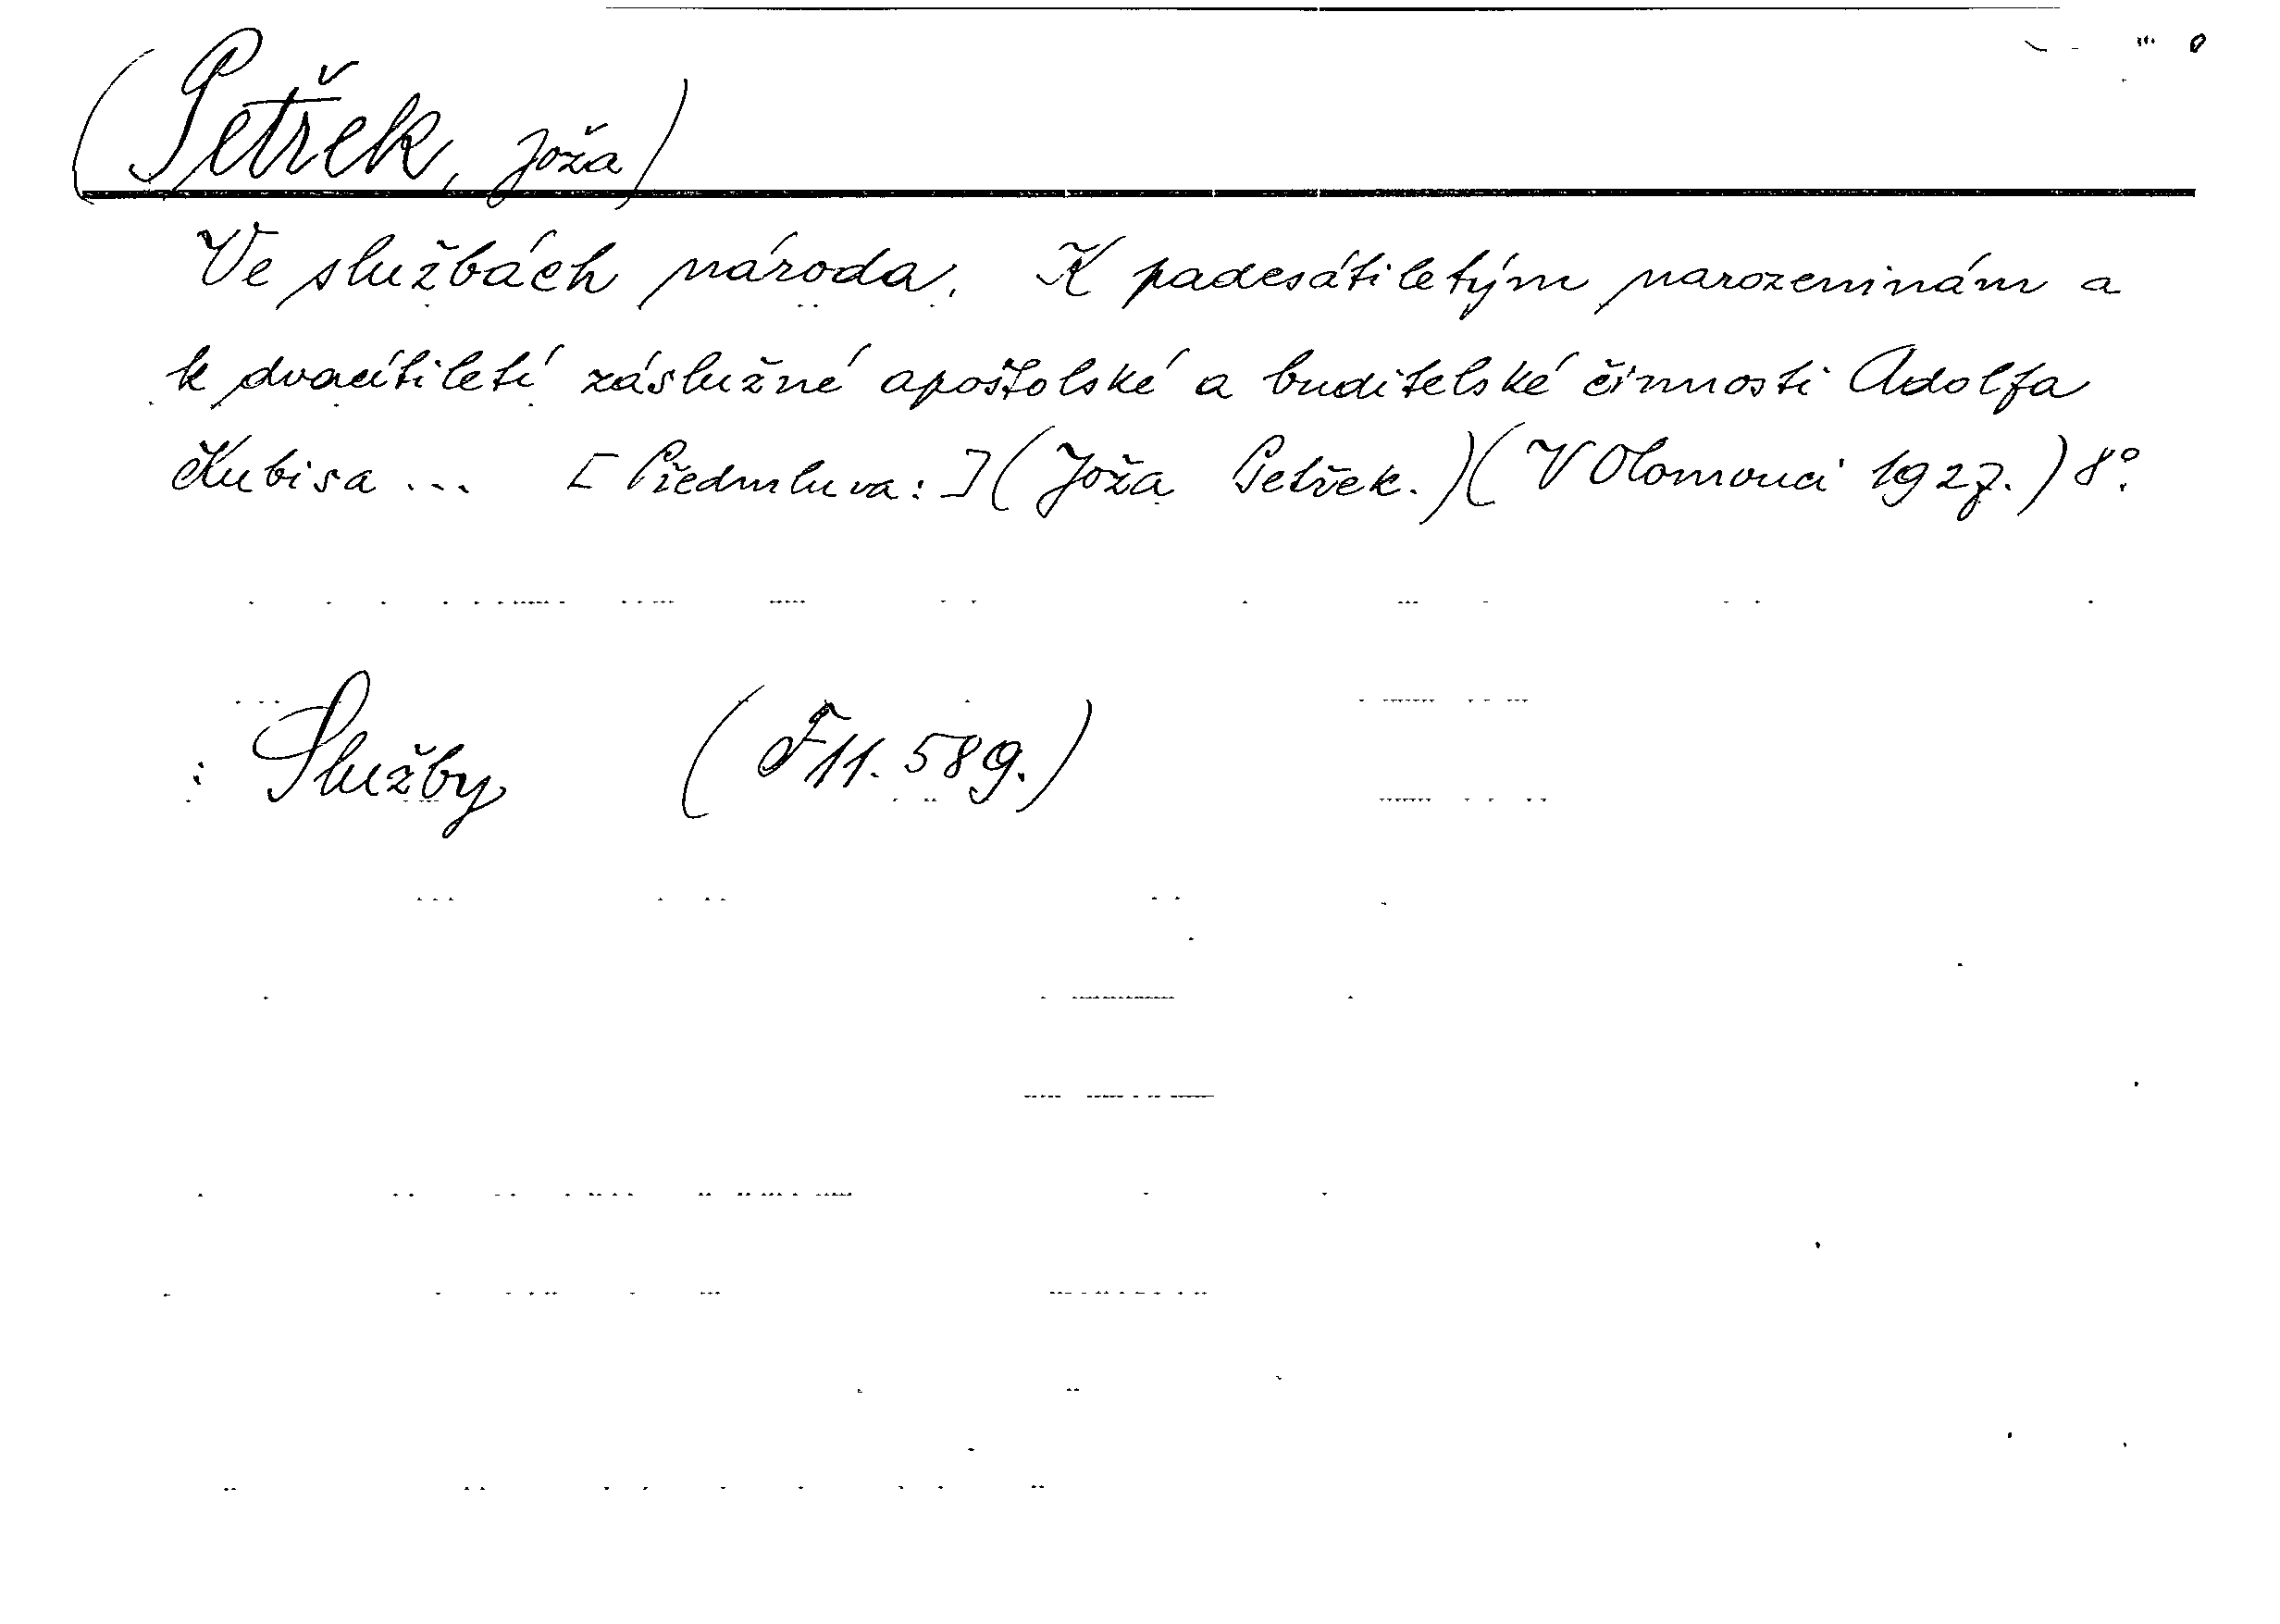 (Petřek, Joža)
Ve službách národa. K padesátiletým narozeninám a
k dvacítiletí záslužné apoštolské a buditelské činnosti Adolfa
Kubisa ... [Předmluva:] (Joža Petřek.) (V Olomouci 1927.) 8°.
: Služby (F 11.589.)